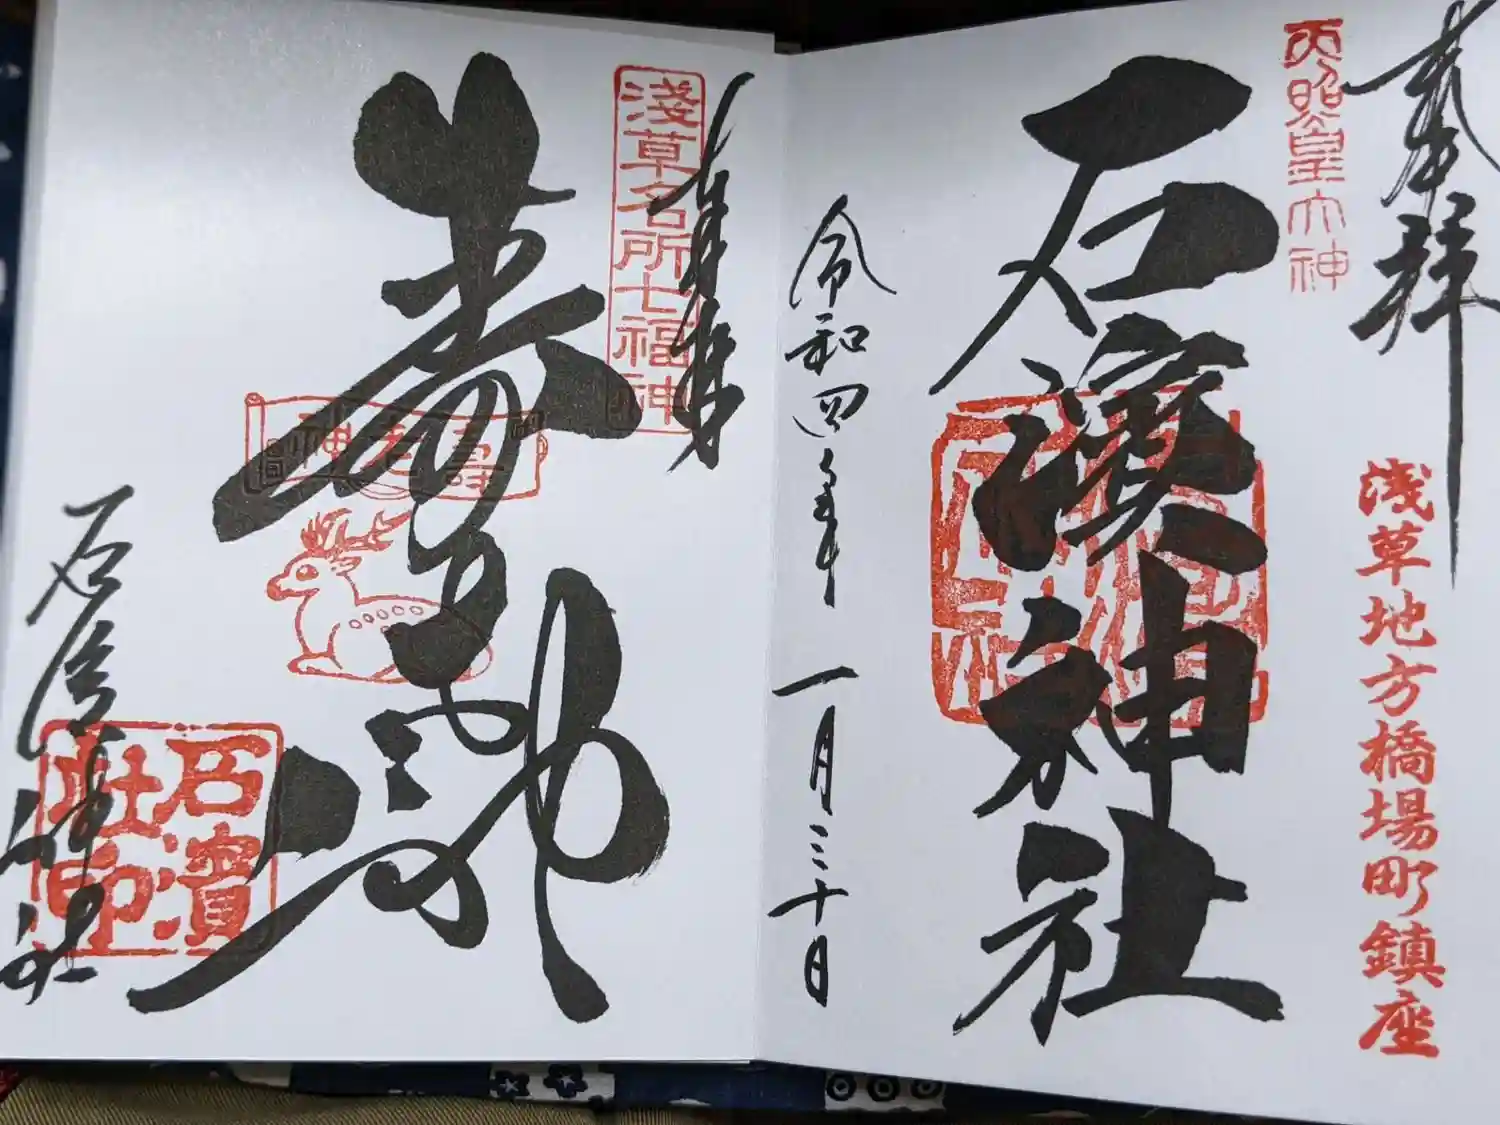 奉拝
天照皇大神
浅草地方橋場町鎮座
石濱神社
令和四年
一月三十日
奉拝
淺草名所七福神
寿老神
壽老神
石濱神社
石濱
社印